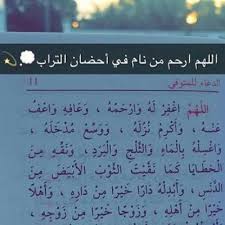 اللهم ارحم من نام في أحضان التراب💭💫
الدعاء للمتوفي
11
اللَّهُمَّ اغْفِرْ لَهُ وَارْحَمْهُ ، وَعَافِهِ وَاعْفُ
عَنْهُ ، وَأَكْرِمْ نُزُلَهُ ، وَوَسِّعْ مُدْخَلَهُ ،
وَاغْسِلْهُ بِالْمَاءِ وَالثَّلْجِ وَالْبَرَدِ ، وَنَقِّهِ مِنَ
الْخَطَايَا كَمَا نَقَّيْتَ الثَّوْبَ الْأَبْيَضَ مِنَ
الدَّنَسِ ، وَأَبْدِلْهُ دَارًا خَيْرًا مِنْ دَارِهِ ، وَأَهْلًا
خَيْرًا مِنْ أَهْلِهِ ، وَزَوْجًا خَيْرًا مِنْ زَوْجِهِ ،